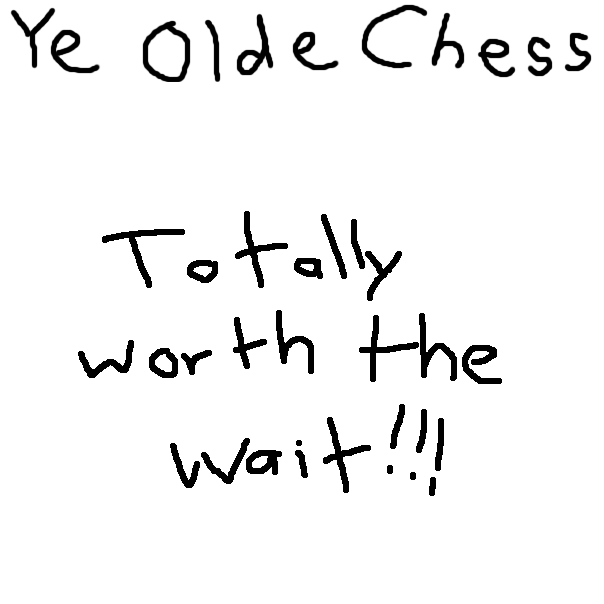 Ye Olde Chess
Totally
worth the
wait!!!